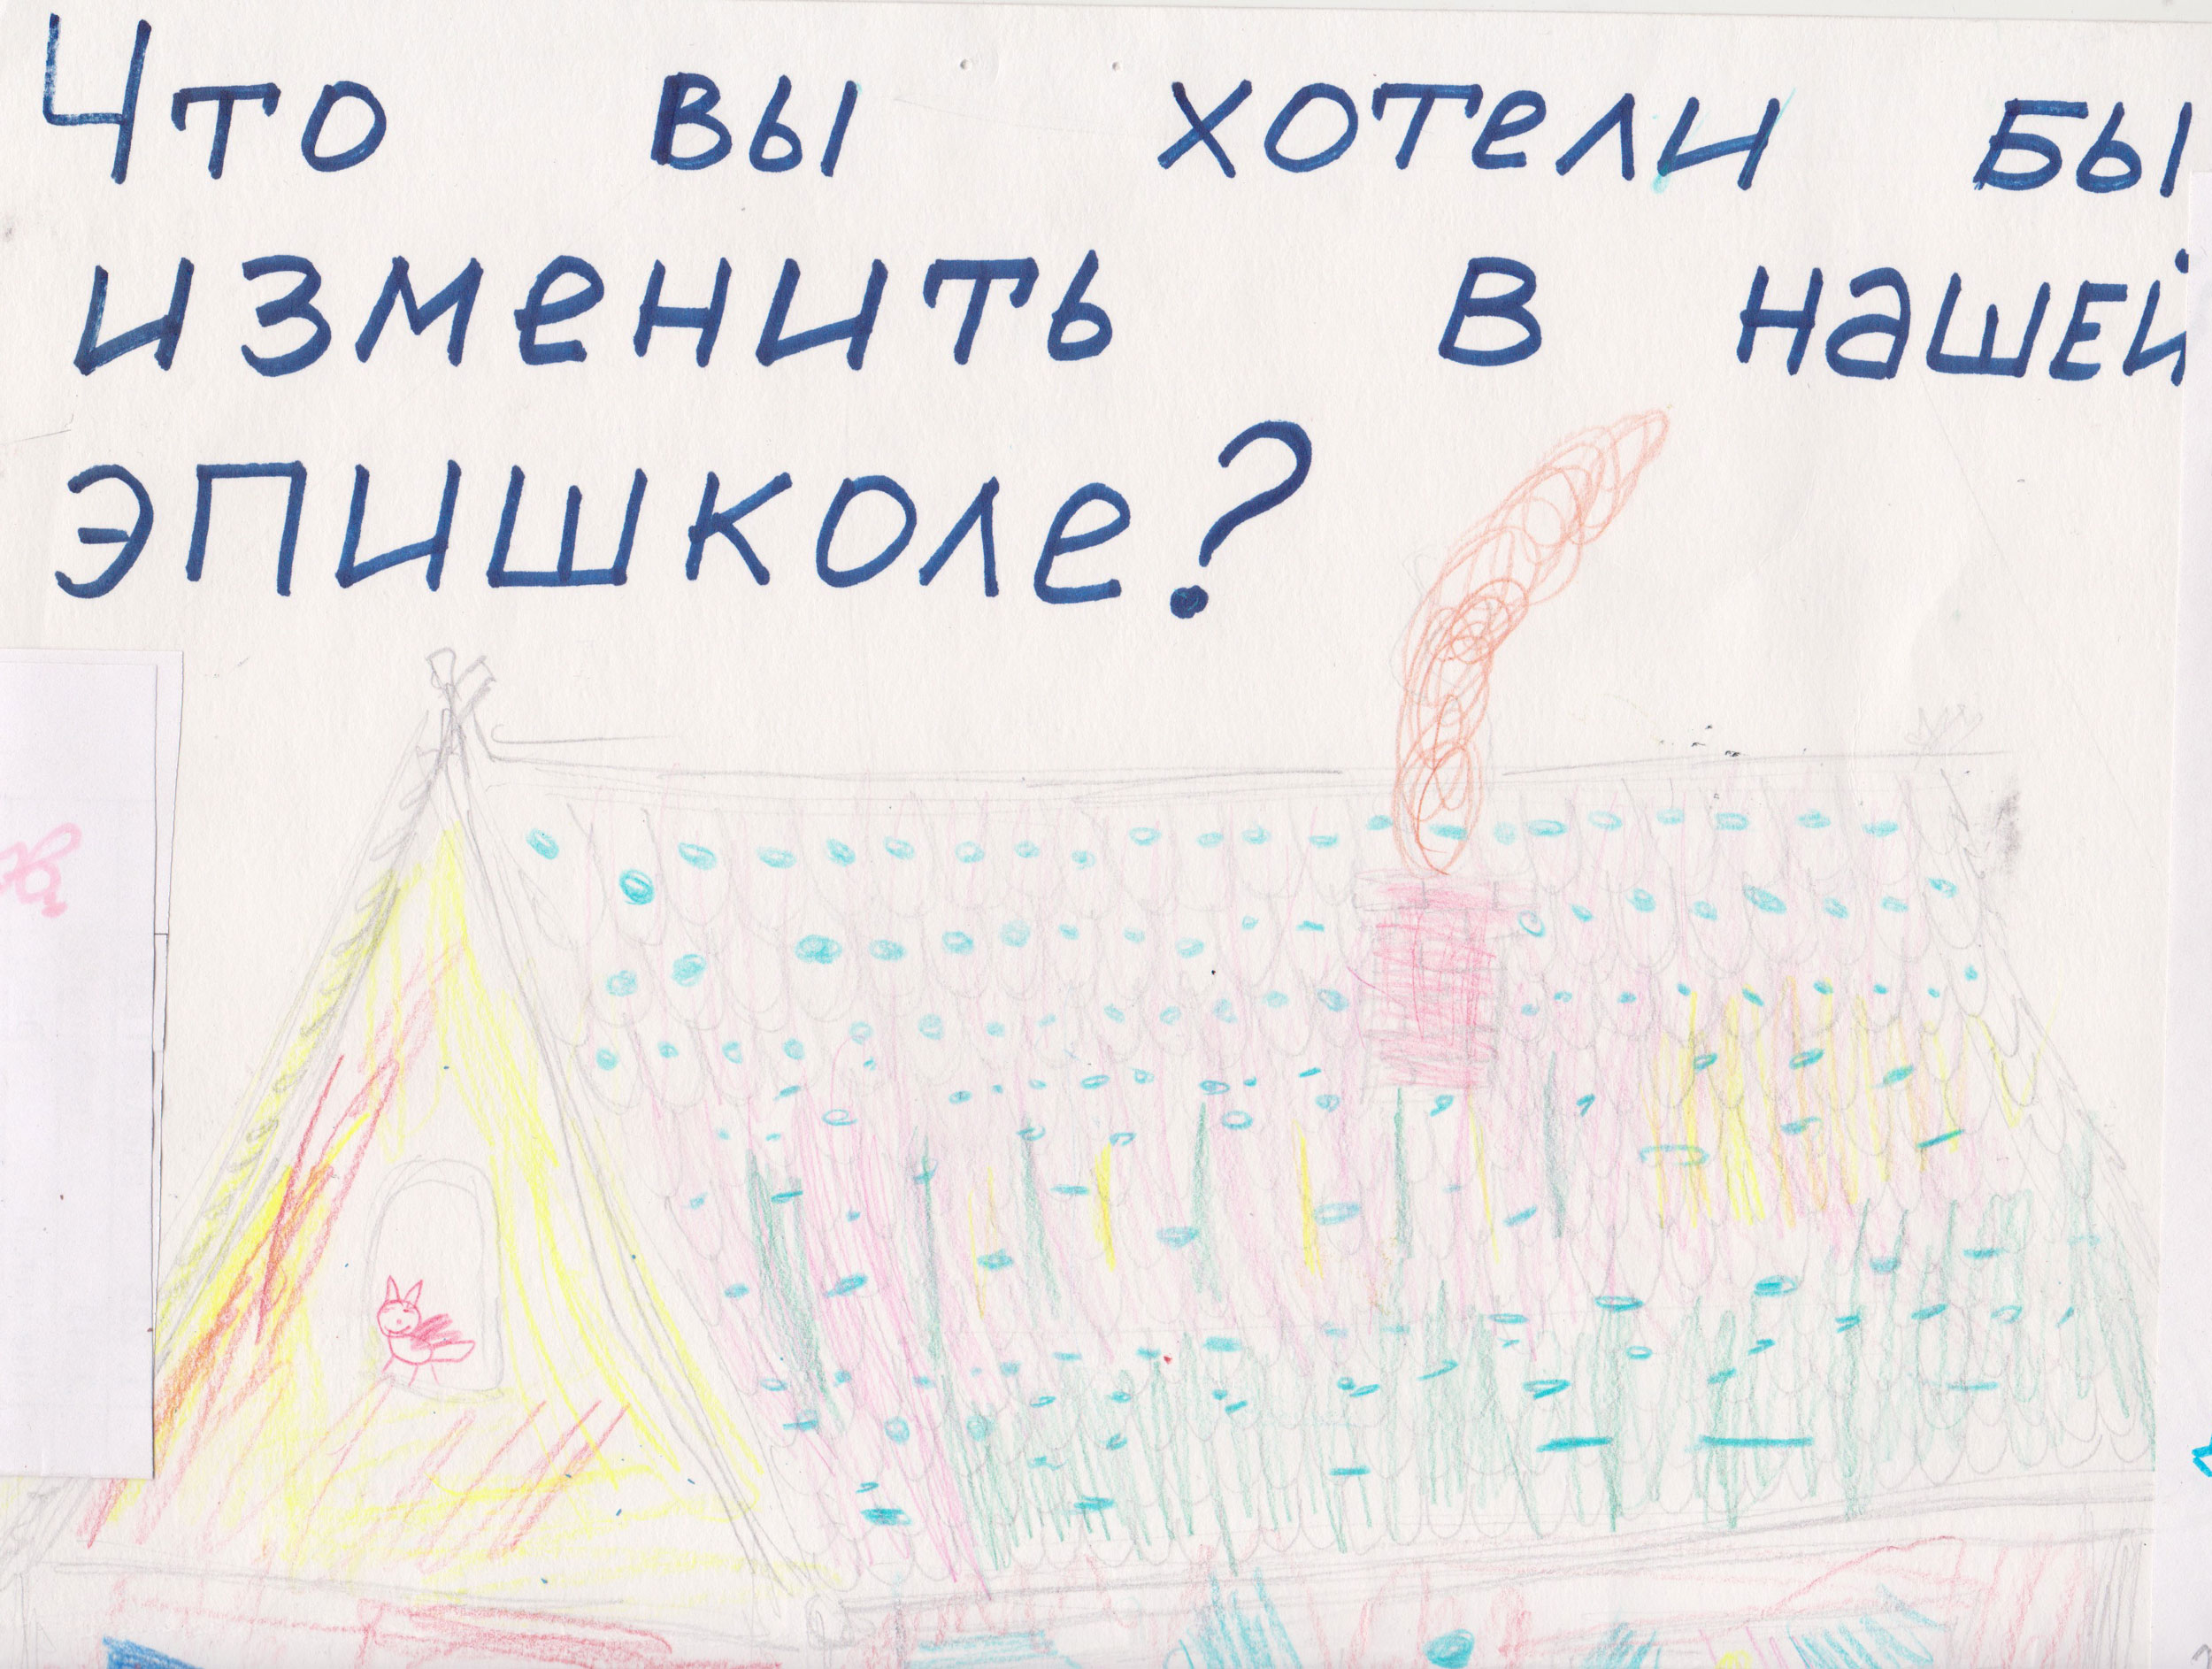 Что вы хотели бы
изменить в нашей
эпишколе?